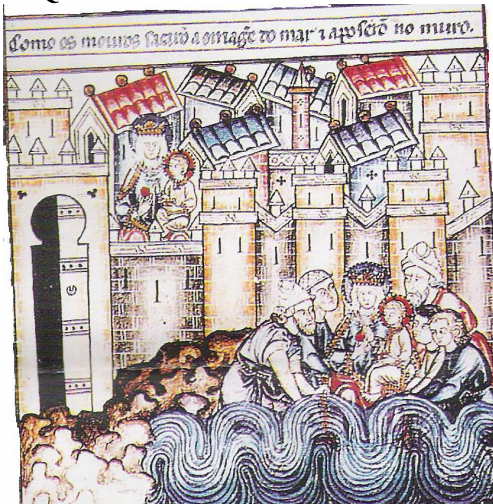 Como os mouros sacarõ a omagẽ do mar ⁊ a poserõ no muro.